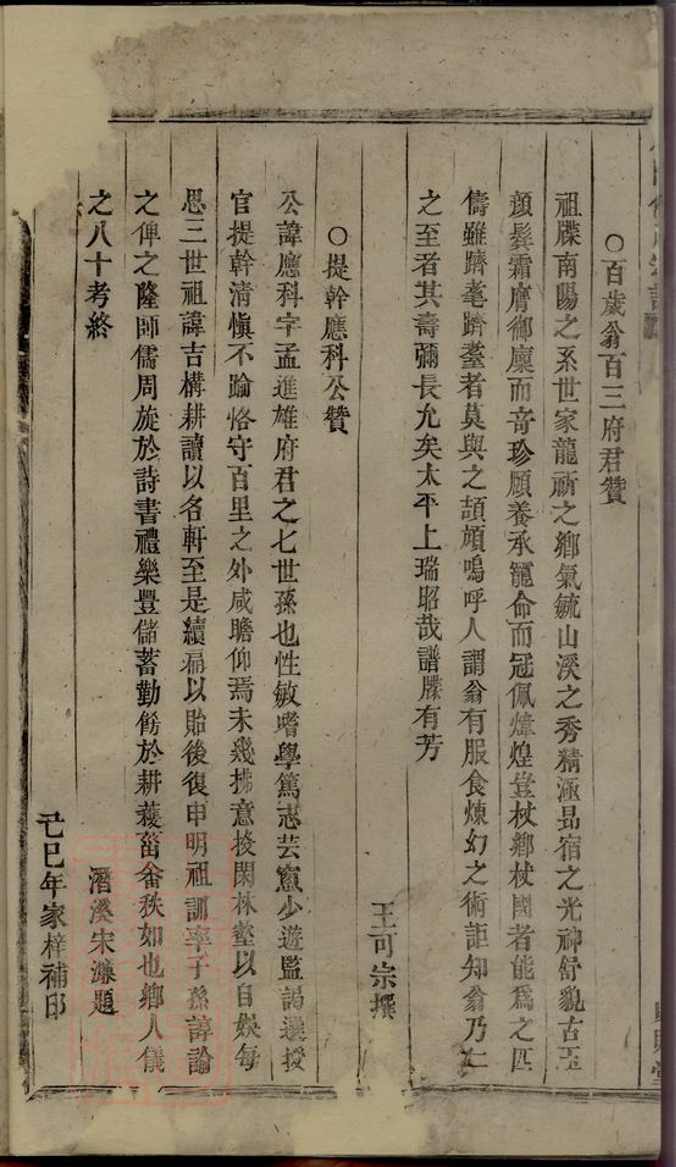 ○百歲翁百三府君贊
祖牒南陽之系世家龍斾之鄉氣毓山溪之秀精涵昴宿之光神舒貌古玉
顔髮霜膺御廩而竒珍頤養承寵命而冠佩煒煌豈杖鄉杖國者能爲之匹
儔雖躋耄躋耋者莫與之頡頏嗚呼人謂翁有服食煉幻之術詎知翁乃仁
之至者其壽彌長允矣太平上瑞昭哉譜牒有芳
王可宗撰
○提幹應科公贊
公諱應科字孟進雄府君之七世孫也性敏嗜學篤志芸窻少遊監謁選授
官提幹清愼不踰恪守百里之外咸瞻仰焉未幾拂意投閑林壑以自娛每
思三世祖諱吉構耕讀以名軒至是續扁以貽後復申明祖訓率子孫諱諭
之俾之隆師儒周旋於詩書禮樂豐儲蓄勤餙於耕穫菑畬秩如也鄉人儀
之八十考終
潛溪宋濂題
己巳年家梓補印